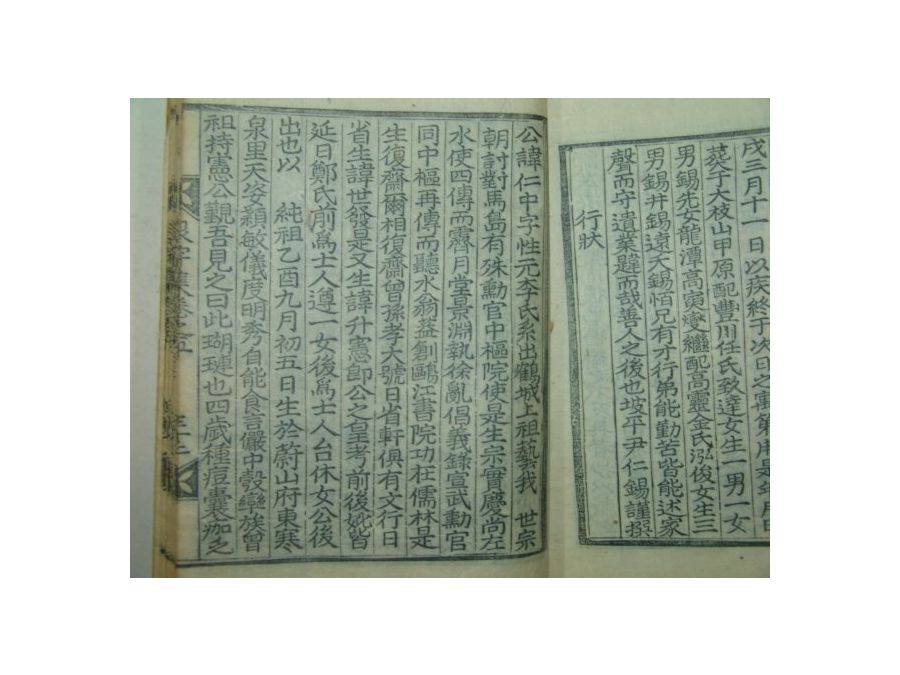 戌三月十一日以疾終于次日之寓第用是年月日
葵于大枝山甲原配豐川任氏致達女生一男一女
男錫先女龍潭高夤燮繼配高靈金氏泓俊女生三
男錫井錫遠天錫恒兄有才行弟能勤苦皆能述家
聲而守遺業韙而哉善人之後也坡平尹仁錫謹撰
行狀
公諱仁中字性元李氏系出鶴城上祖藝我 世宗
朝討對馬島有殊勳官中樞院使是生宗實慶尚左
水使四傳而霽月堂景淵執徐亂倡義錄宣武勳官
同中樞再傳而聽水翁益創鷗江書院功在儒林是
生復齋爾相復齋曾孫孝大號日省軒俱有文行日
省生諱世發是又生諱升憲卽公之皇考前後妣皆
延日鄭氏前爲士人遵一女後爲士人台休女公後
出也以 純祖乙酉九月初五日生於蔚山府東寒
泉里天姿穎敏儀度明秀自能食言儼中彀孿族曾
祖持憲公觀吾見之曰此瑚璉也四歲種痘囊痂之
卷之五
三十二